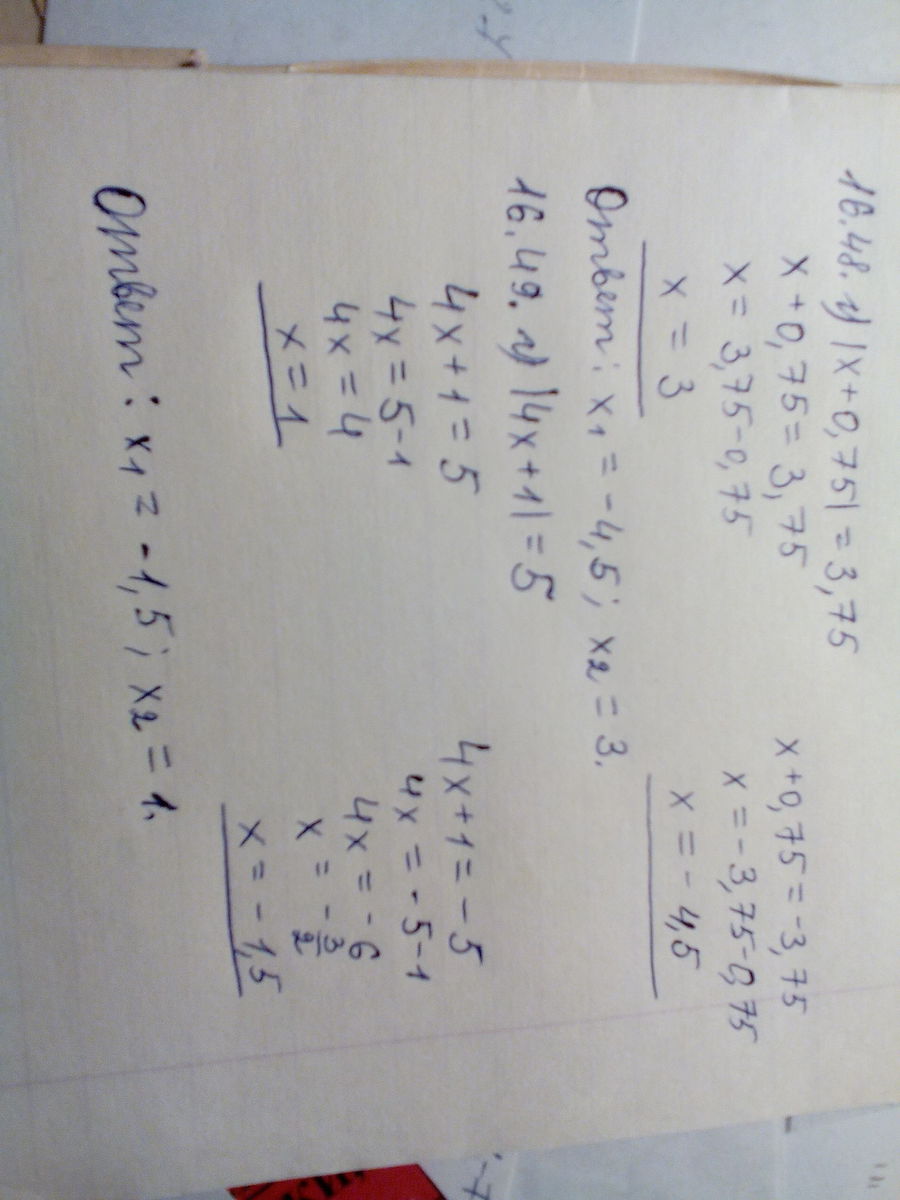 16.48. г) |x+0,75| = 3,75
x+0,75 = 3,75    x+0,75 = -3,75
x = 3,75-0,75    x = -3,75-0,75
x = 3    x = -4,5
Ответ: x₁ = -4,5; x₂ = 3.
16.49. г) |4x+1| = 5
4x+1 = 5    4x+1 = -5
4x = 5-1    4x = -5-1
4x = 4    4x = -6
x = 1    x = -3/2
x = -1,5
Ответ: x₁ = -1,5; x₂ = 1.